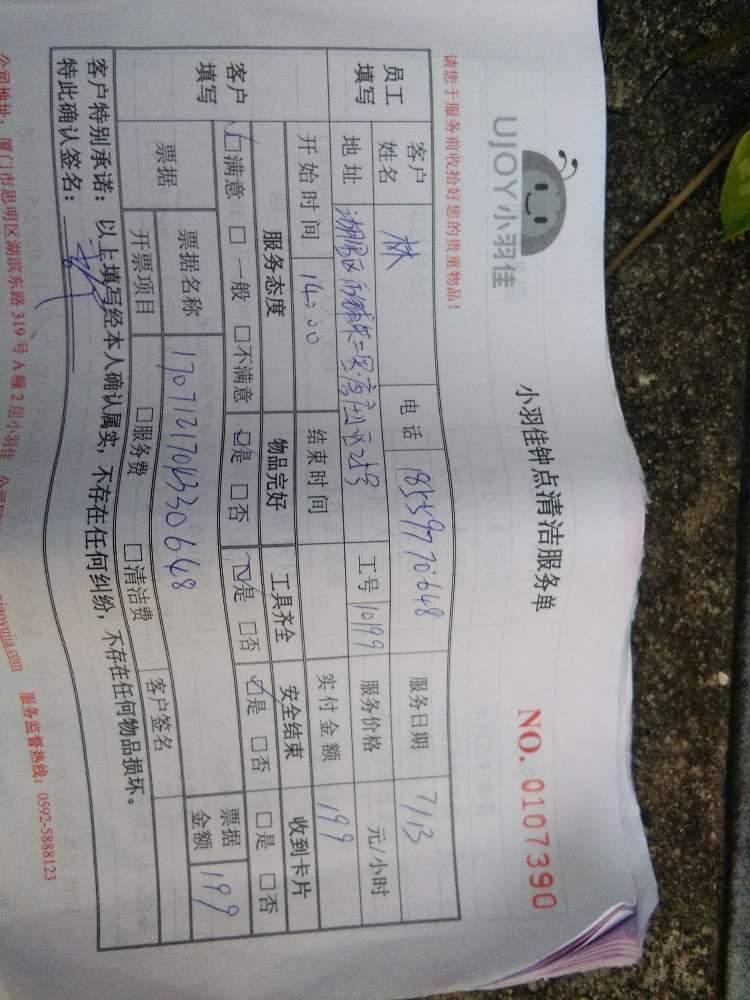 UJOY小羽佳
小羽佳钟点清洁服务单
NO. 0107390
请您于服务前收拾好您的贵重物品！
员工填写
客户姓名 林 电话 18559770648 服务日期 7/13
地址 湖里区 工号 10199 服务价格 元/小时
开始时间 14:00 结束时间 实付金额 199
客户填写
服务态度 物品完好 工具齐全 安全结束 收到卡片
☑满意 □一般 □不满意 ☑是 □否 ☑是 □否 ☑是 □否 □是 □否
票据 票据名称 1707121704330648 票据金额 199
开票项目 □服务费 □清洁费 客户签名
客户特别承诺：以上填写经本人确认属实，不存在任何纠纷，不存在任何物品损坏。
特此确认签名：
公司地址：厦门市思明区湖滨东路319号A幢2层小羽佳
服务监督热线：0592-5888123